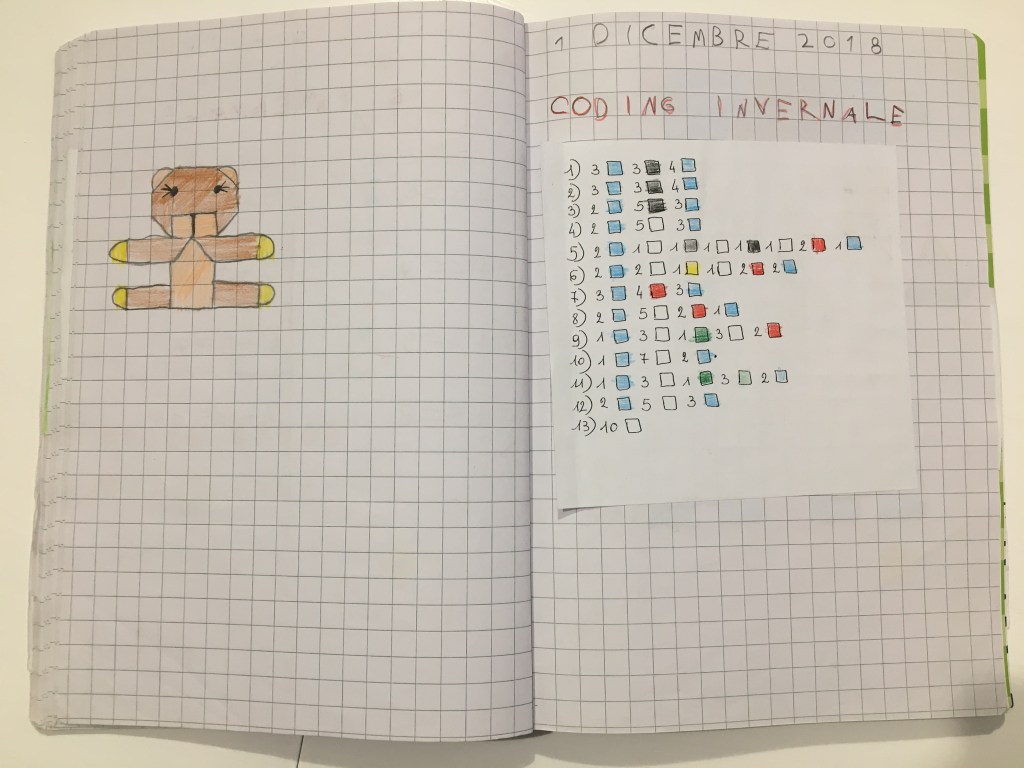 1 DICEMBRE 2018
CODING INVERNALE
1) 3 3 4
2) 3 3 4
3) 2 5 3
4) 2 5 3
5) 2 1 1 1 1 1 2 1
6) 2 2 1 1 2 2
7) 3 4 3
8) 2 5 2 1
9) 1 3 1 3 2
10) 1 7 2
11) 1 3 1 3 2
12) 2 5 3
13) 10